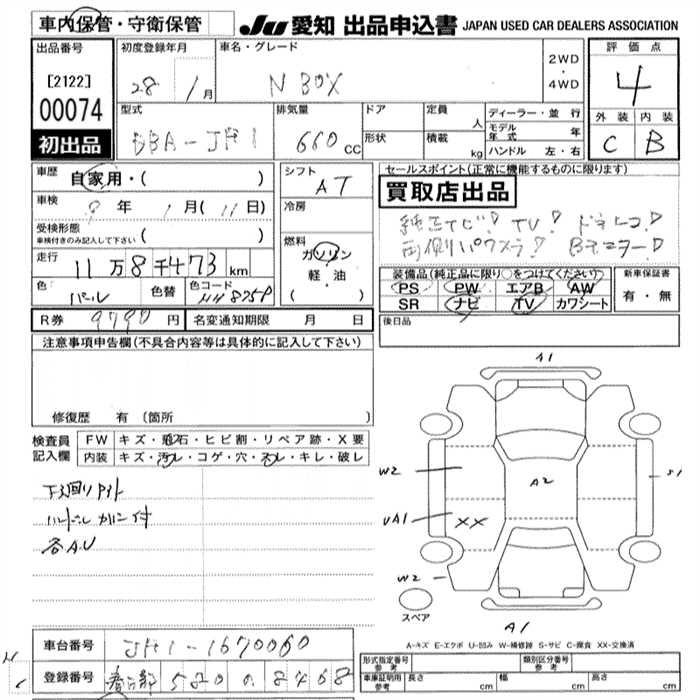 車内保管・守衛保管
JU 愛知 出品申込書 JAPAN USED CAR DEALERS ASSOCIATION
出品番号
[2122]
00074
初出品
初度登録年月
28 1月
車名・グレード
N BOX
2WD
・
4WD
評価点
4
外装 内装
C B
型式
DBA-JF1
排気量
660 CC
ドア
形状
定員 人
積載 kg
ディーラー・並行
モデル年式 年
ハンドル 左・右
車歴 自家用・( )
車検 9年 1月(11日)
受検形態
車検付きのみ記入して下さい ( )
走行 11万8千473km
色 パール 色替 色コード NH875P
シフト
AT
冷房
燃料
ガソリン
軽・油
( )
セールスポイント(正常に機能するものに限ります)
買取店出品
純正ナビ! TV! ドラレコ!
両側パワスラ! Bモニター!
装備品(純正品に限り○をつけてください)
PS PW エアB AW
SR ナビ TV カワシート
新車保証書
有・無
R券 9790円 名変通知期限 月 日
後日品
注意事項申告欄(不具合内容等は具体的に記入して下さい)
修復歴 有 (箇所
検査員記入欄
FW キズ・飛石・ヒビ割・リペア跡・X要
内装 キズ・汚レ・コゲ・穴・スレ・キレ・破レ
下廻りサビ
ハンドル カバー付
各A.U
A1
W2
A2
S1
UA1
XX
W2
スペア
A1
A-キズ E-エクボ U-凹み W-補修跡 S-サビ C-腐食 XX-交換済
車台番号 JF1-1670060
登録番号 春日部 580 の 8468
形式指定番号 参考
類別区分番号 参考
車庫証明用 参考 長さ cm 幅 cm 高さ cm